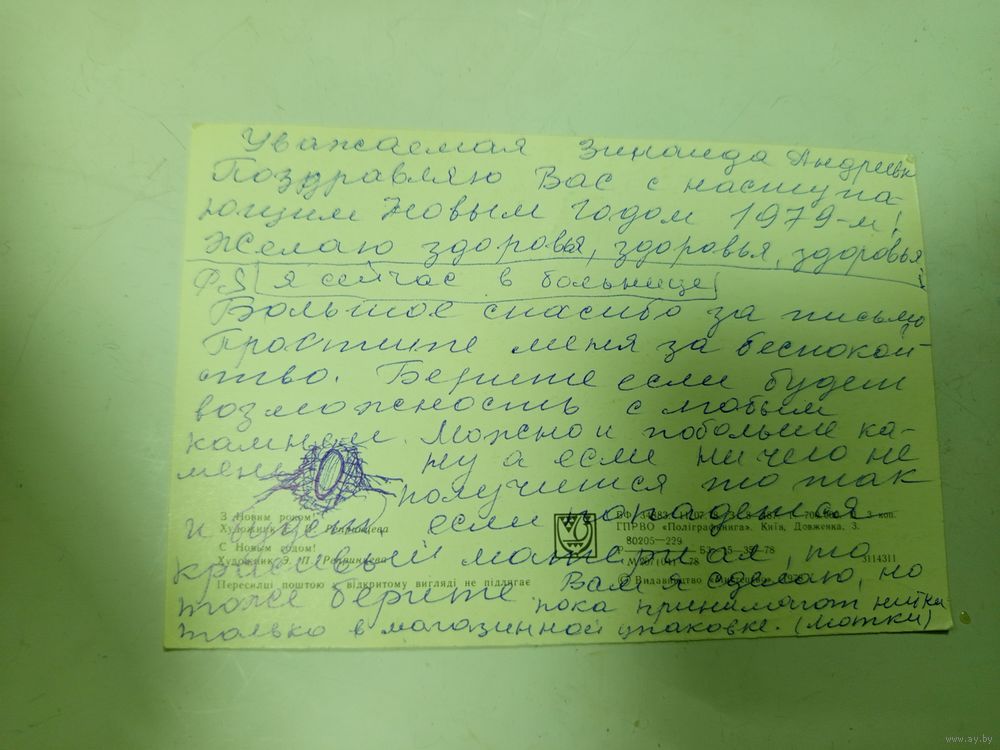 Уважаемая Зинаида Андреевн
Поздравляю Вас с наступа-
ющим Новым годом 1979-м!
Желаю здоровья, здоровья, здоровья!
Р.Я я сейчас в больнице
Большое спасибо за письмо
Простите меня за беспокой-
ство. Берите если будет
возможность с любым
камнем. Можно и побольше ка-
мень ну а если ничего не
получится то так
и будет, если попадется
красивый материал, то
тоже берите. Вам я сделаю, но
пока принимают нитки
только в магазинной упаковке. (мотки)
З Новим роком!
Художник Е. П. Репринцева
С Новым годом!
Художник Э. П. Репринцева
Пересилці поштою у відкритому вигляді не підлягає
3 коп.
ГПРВО «Поліграфкнига». Київ, Довженка, 3.
80205—229
3114311
© Видавництво
www.ay.by